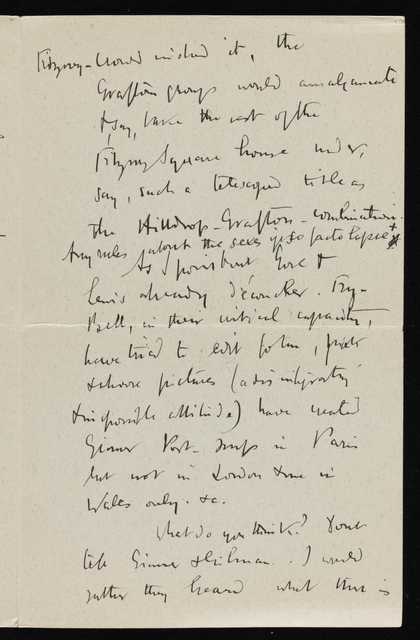 Fitzroy-Crowd wished it, the
Grafton group would amalgamate
& say, take the rest of the
Fitzroy Square house under,
say, such a telescoped title as
the Hilldrop-Grafton-combination.
Any rules about the sexes ipso facto lapse
As I point out Gore &
Lewis already Fry-
Bell, in their critical capacity,
have tried to edit
& choose pictures (a disintegrating
& impossible attitude) have
Ginner Post- in Paris
but not in London & me in
Wales only. &c.
What do you think? Dont
tell Ginner & Gilman. I would
rather they heard what this is